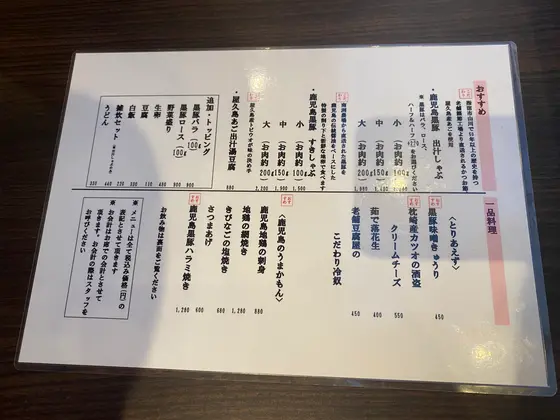 おすすめ
・鹿児島黒豚 出汁しゃぶ
※ 黒豚はバラ、ロース、
小 (お肉約100g)
中 (お肉約150g)
大 (お肉約200g)
・鹿児島黒豚 すきしゃぶ
小 (お肉約100g)
中 (お肉約150g)
大 (お肉約200g)
・屋久島あご出汁湯豆腐
追加・トッピング
黒豚バラ(100g)
黒豚ロース(100g)
野菜盛り
生卵
豆腐
白飯
雑炊セット
うどん
一品料理
〈とりあえず〉
黒豚味噌きゅうり
枕崎産カツオの酒盗
クリームチーズ 550
茹で落花生 400
老舗豆腐屋の
こだわり冷奴 450
〈鹿児島のうまかもん〉
鹿児島地鶏の刺身 880
地鶏の網焼き 1,280
きびなごの塩焼き 660
さつまあげ 600
鹿児島黒豚ハラミ焼き 1,280
お飲み物は裏面をご覧ください
※ メニューは全て税込み価格(円)の
表記とさせて頂きます
※ お会計はお席での会計とさせて
頂きます お会計の際はスタッフを
お呼びください